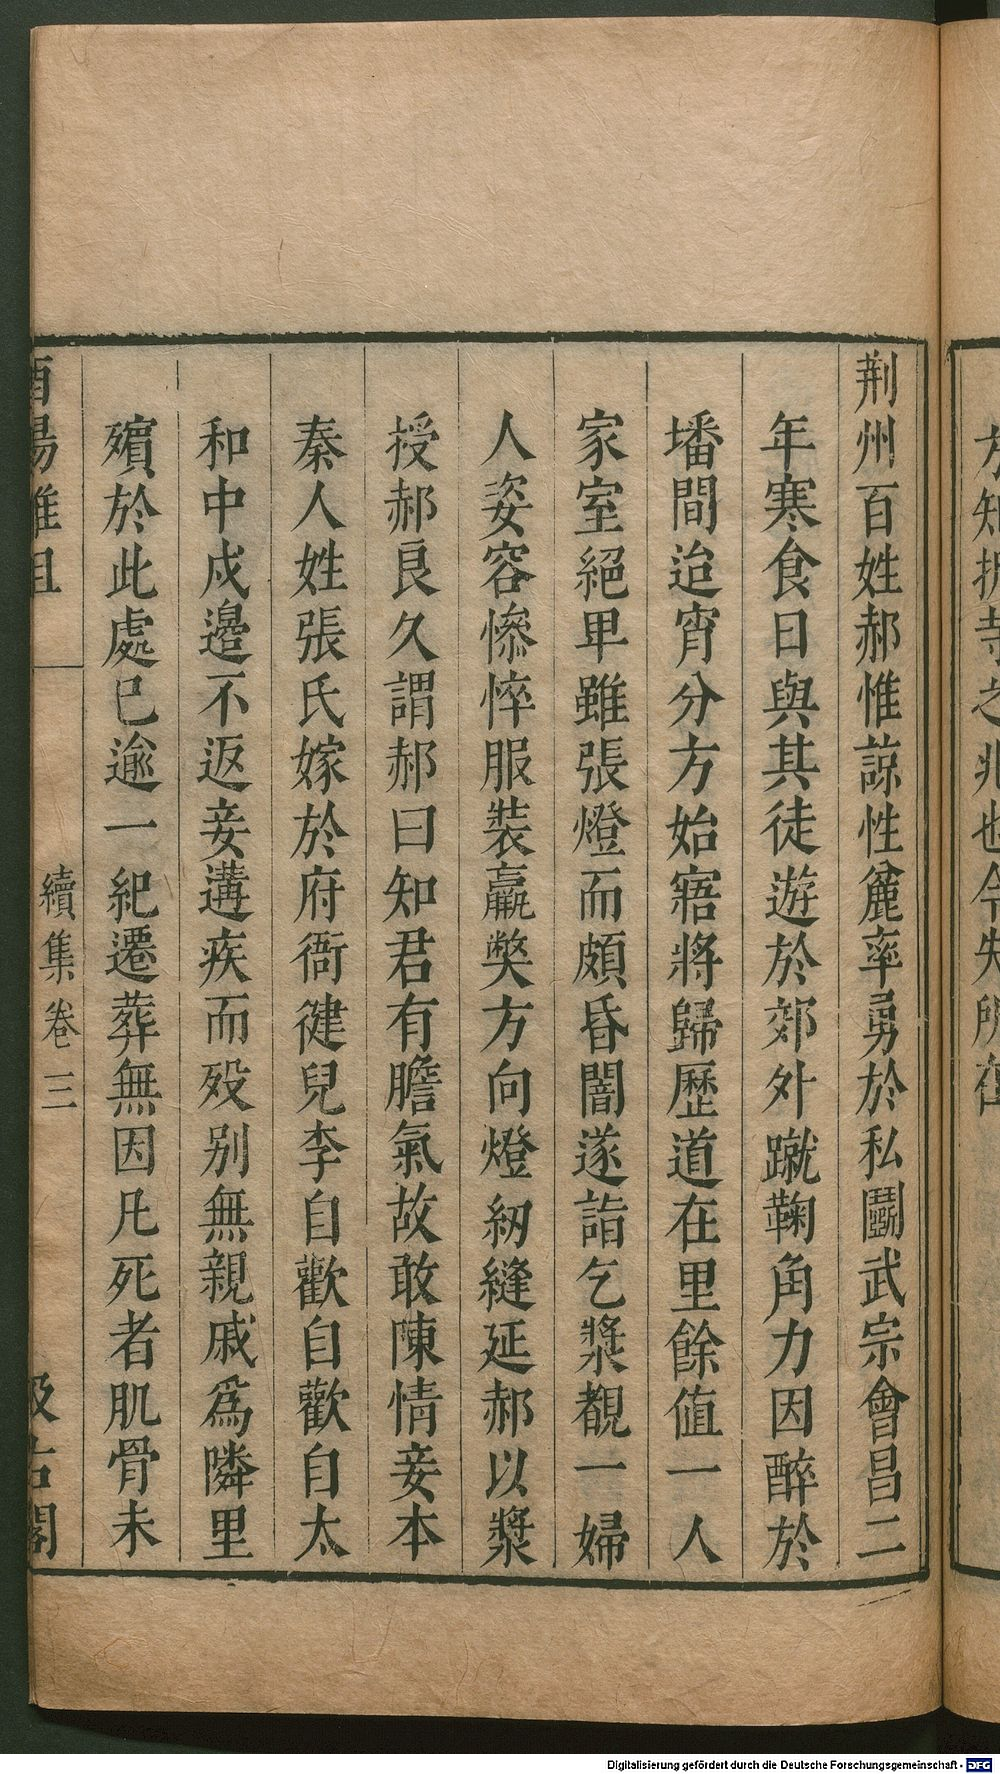 荆州百姓郝惟諒性麄率勇於私鬬武宗會昌二
年寒食日與其徒遊於郊外蹴鞠角力因醉於
墦間迨宵分方始寤將歸歷道左里餘值一人
家室絕卑雖張燈而頗昏闇遂詣乞漿覩一婦
人姿容慘悴服裝羸獘方向燈紉縫延郝以漿
授郝良久謂郝曰知君有膽氣故敢陳情妾本
秦人姓張氏嫁於府衙健兒李自歡自歡自太
和中戍邊不返妾遘疾而歿别無親戚爲隣里
殯於此處已逾一紀遷葬無因凡死者肌骨未
酉陽雜俎
續集卷三
汲古閣
方知折寺之兆也今失所在
Digitalisierung gefördert durch die Deutsche Forschungsgemeinschaft - DFG